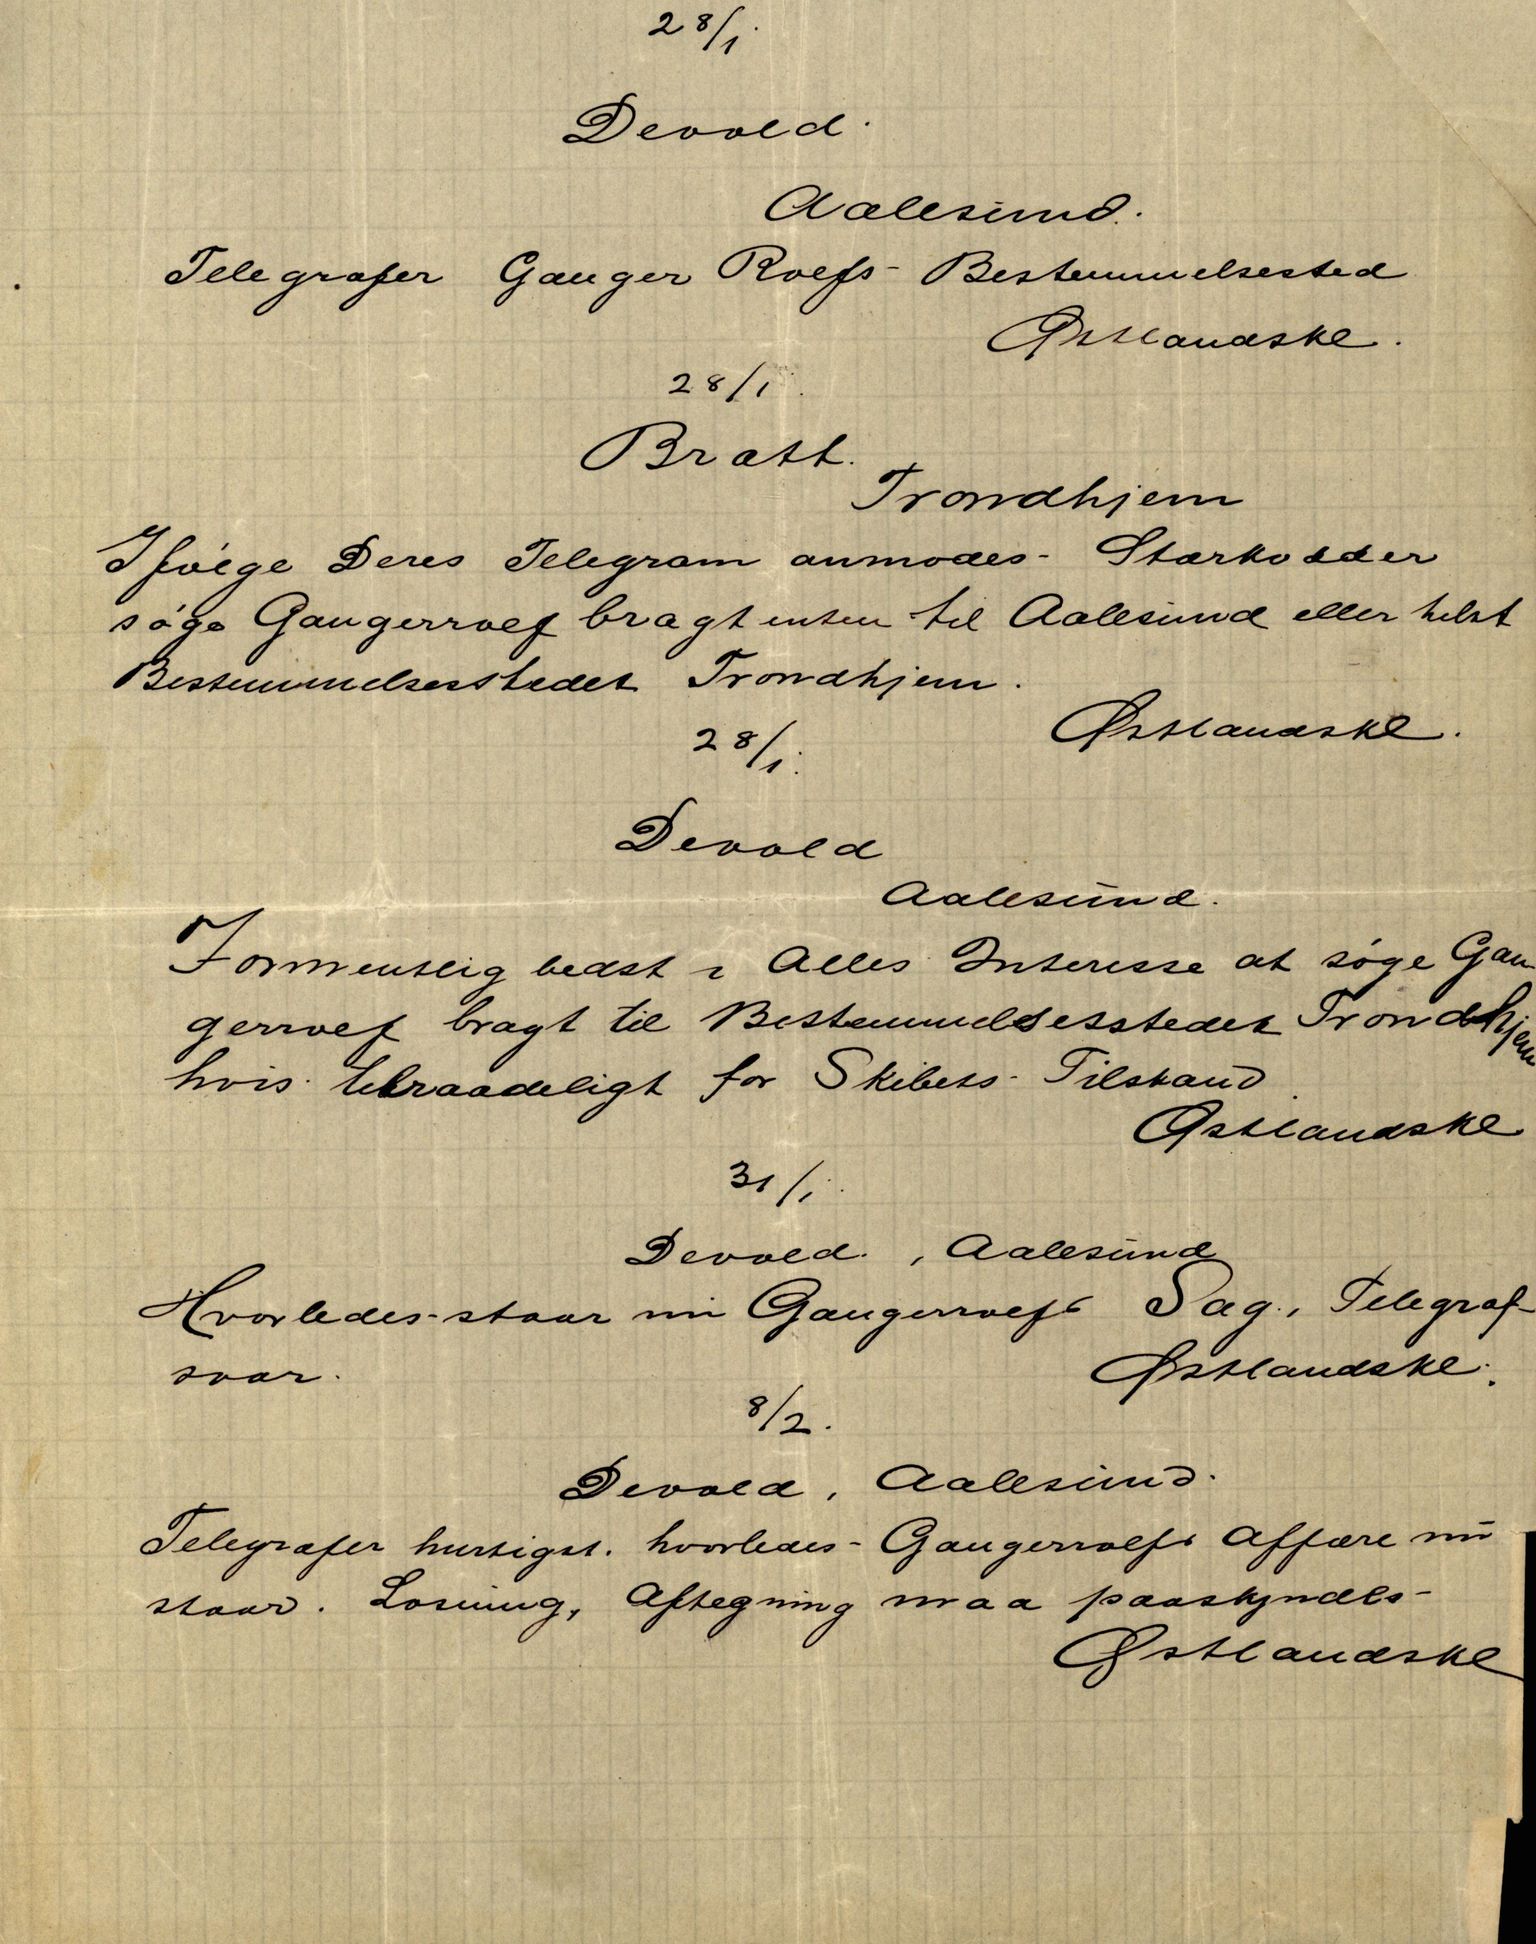 28/1.
Devold.
Aalesund.
Telegrafer Ganger Rolfs Bestemmelsested
Østlandske.
28/1.
Bratt.
Trondhjem
Ifølge Deres Telegram anmodes Stærkodder
søge Gangerrolf bragt enten til Aalesund eller helst
Bestemmelsesstedet Trondhjem.
Østlandske.
28/1.
Devold
Aalesund.
Formentlig bedst i Alles Interesse at søge Gan-
gerrolf bragt til Bestemmelsesstedet Trondhjem
hvis tilraadeligt for Skibets Tilstand
Østlandske
31/1.
Devold., Aalesund
Hvorledes staar nu Gangerrolfs Sag, Telegraf-
svar.
Østlandske.
8/2.
Devold, Aalesund.
Telegrafer hurtigst. hvorledes Gangerrolfs Affære nu
staar. Losning, Aftegning maa paaskyndes
Østlandske